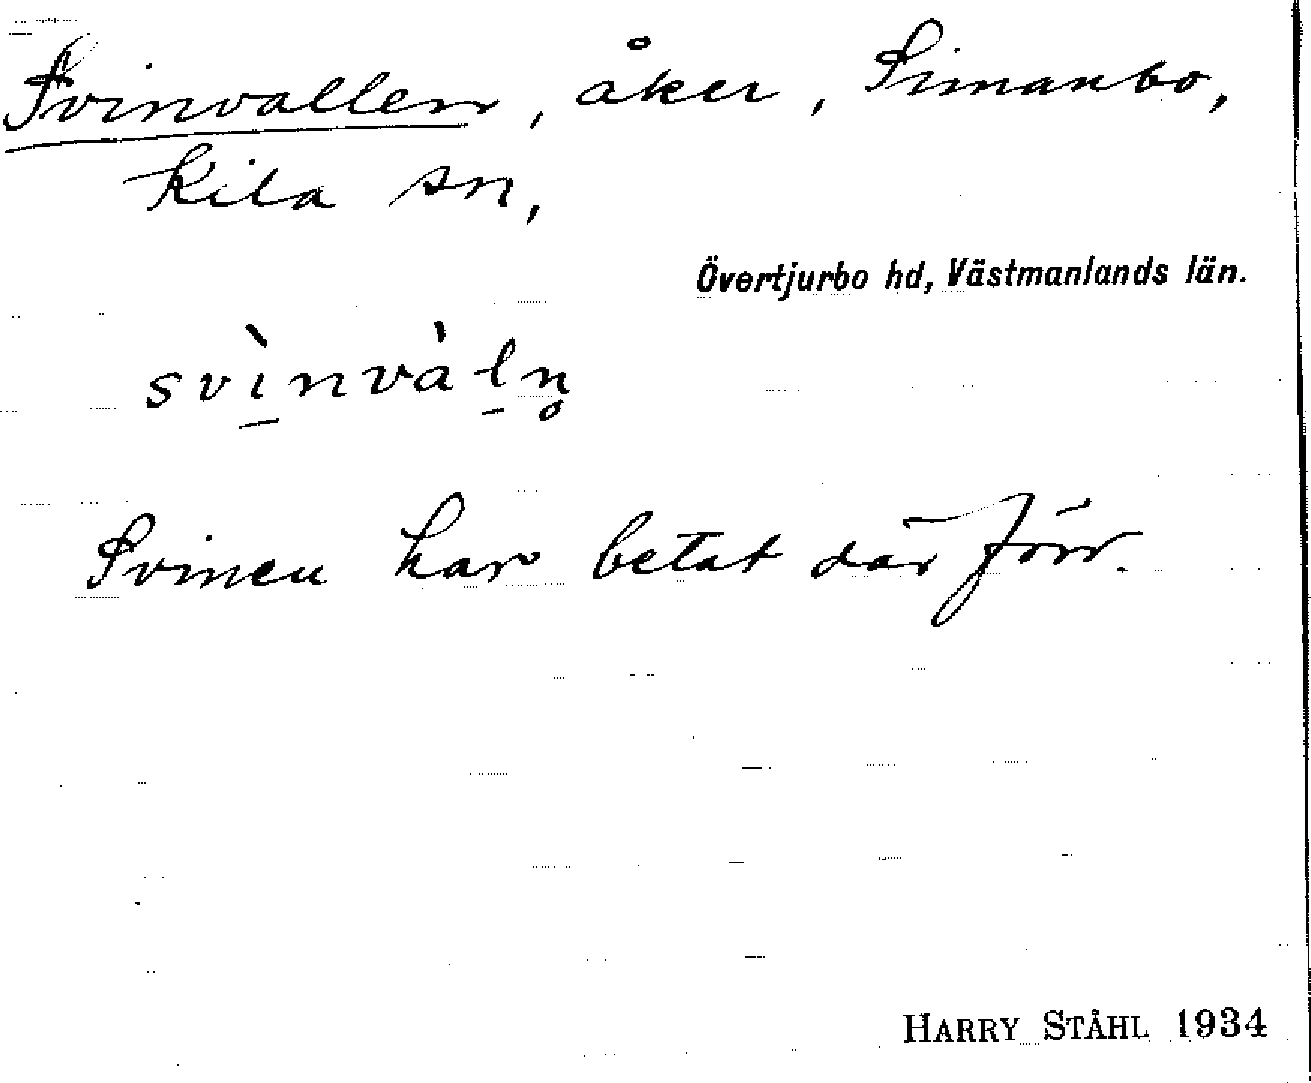 Svinvallen, åker, Simanbo,
Kila sn,
Övertjurbo hd, Västmanlands län.
svı̀nvàl̠n̥
Svinen har betat där förr.
HARRY STÅHL 1934